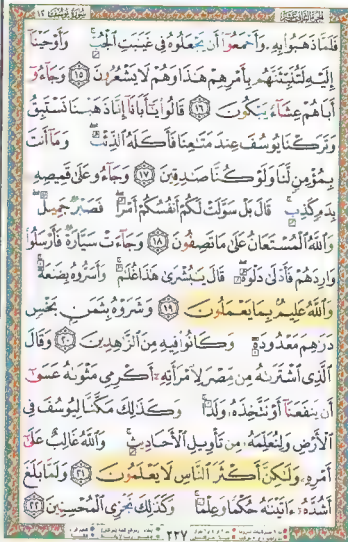 الجزء الثاني عشر سورة يوسف ١٢
فَلَمَّا ذَهَبُوا۟ بِهِۦ وَأَجْمَعُوٓا۟ أَن يَجْعَلُوهُ فِى غَيَٰبَتِ ٱلْجُبِّ وَأَوْحَيْنَآ
إِلَيْهِ لَتُنَبِّئَنَّهُم بِأَمْرِهِمْ هَٰذَا وَهُمْ لَا يَشْعُرُونَ ١٥ وَجَآءُوٓ
أَبَاهُمْ عِشَآءً يَبْكُونَ ١٦ قَالُوا۟ يَٰٓأَبَانَآ إِنَّا ذَهَبْنَا نَسْتَبِقُ
وَتَرَكْنَا يُوسُفَ عِندَ مَتَٰعِنَا فَأَكَلَهُ ٱلذِّئْبُ وَمَآ أَنتَ
بِمُؤْمِنٍ لَّنَا وَلَوْ كُنَّا صَٰدِقِينَ ١٧ وَجَآءُو عَلَىٰ قَمِيصِهِۦ
بِدَمٍ كَذِبٍ قَالَ بَلْ سَوَّلَتْ لَكُمْ أَنفُسُكُمْ أَمْرًا فَصَبْرٌ جَمِيلٌ
وَٱللَّهُ ٱلْمُسْتَعَانُ عَلَىٰ مَا تَصِفُونَ ١٨ وَجَآءَتْ سَيَّارَةٌ فَأَرْسَلُوا۟
وَارِدَهُمْ فَأَدْلَىٰ دَلْوَهُۥ قَالَ يَٰبُشْرَىٰ هَٰذَا غُلَٰمٌ وَأَسَرُّوهُ بِضَٰعَةً
وَٱللَّهُ عَلِيمٌۢ بِمَا يَعْمَلُونَ ١٩ وَشَرَوْهُ بِثَمَنٍۭ بَخْسٍ
دَرَٰهِمَ مَعْدُودَةٍ وَكَانُوا۟ فِيهِ مِنَ ٱلزَّٰهِدِينَ ٢٠ وَقَالَ
ٱلَّذِى ٱشْتَرَىٰهُ مِن مِّصْرَ لِٱمْرَأَتِهِۦٓ أَكْرِمِى مَثْوَىٰهُ عَسَىٰٓ
أَن يَنفَعَنَآ أَوْ نَتَّخِذَهُۥ وَلَدًا وَكَذَٰلِكَ مَكَّنَّا لِيُوسُفَ فِى
ٱلْأَرْضِ وَلِنُعَلِّمَهُۥ مِن تَأْوِيلِ ٱلْأَحَادِيثِ وَٱللَّهُ غَالِبٌ عَلَىٰٓ
أَمْرِهِۦ وَلَٰكِنَّ أَكْثَرَ ٱلنَّاسِ لَا يَعْلَمُونَ ٢١ وَلَمَّا بَلَغَ
أَشُدَّهُۥٓ ءَاتَيْنَٰهُ حُكْمًا وَعِلْمًا وَكَذَٰلِكَ نَجْزِى ٱلْمُحْسِنِينَ ٢٢
٢٣٧